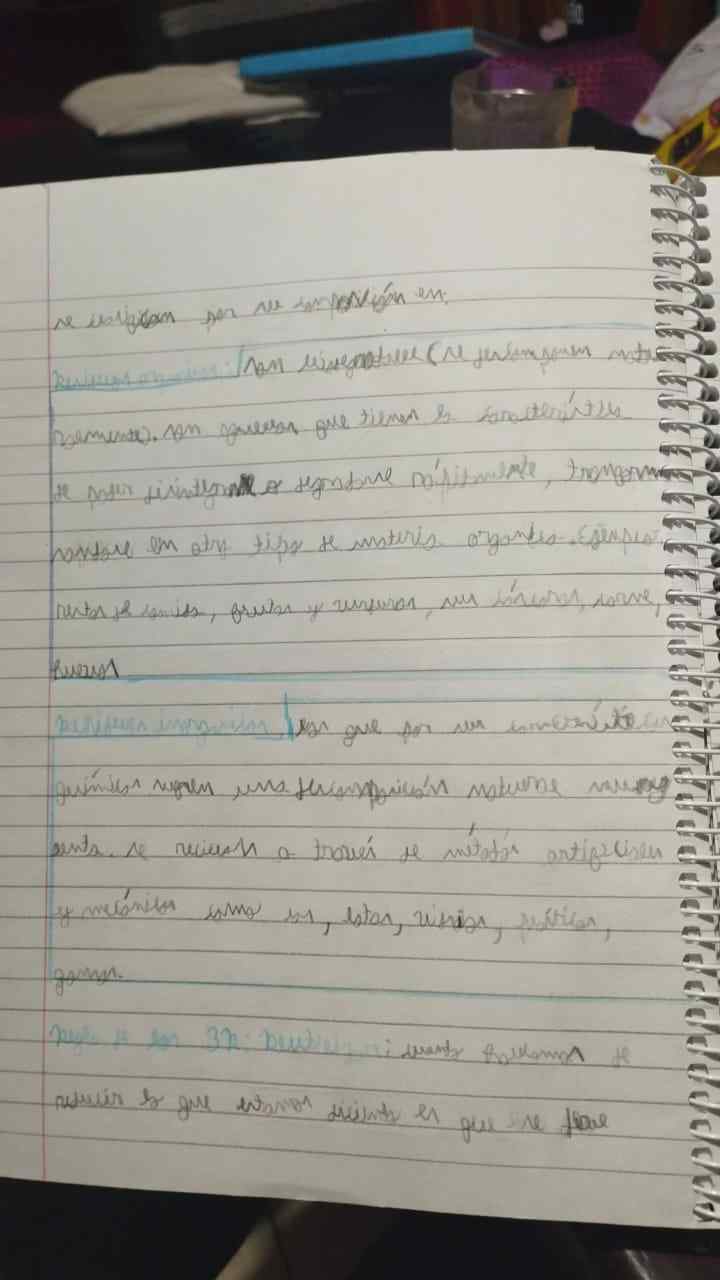 se clasifican por su composición en:
Residuos orgánicos: Son biodegradables (se descomponen natu
ralmente). son aquellos que tienen la característica
de poder desintegrarse o degradarse rápidamente, transforman
dose en otro tipo de materia orgánica. Ejemplos:
restos de comida, frutas y verduras, sus cáscaras, carne,
huevos
Residuos inorgánicos: los que por sus características
químicas sufren una descomposición natural muy
lenta. se reciclan a través de métodos artificiales
y mecánicos como latas, vidrios, plásticos,
gomas.
Regla de las 3R: Reducir: cuando hablamos de
reducir lo que estamos diciendo es que se debe